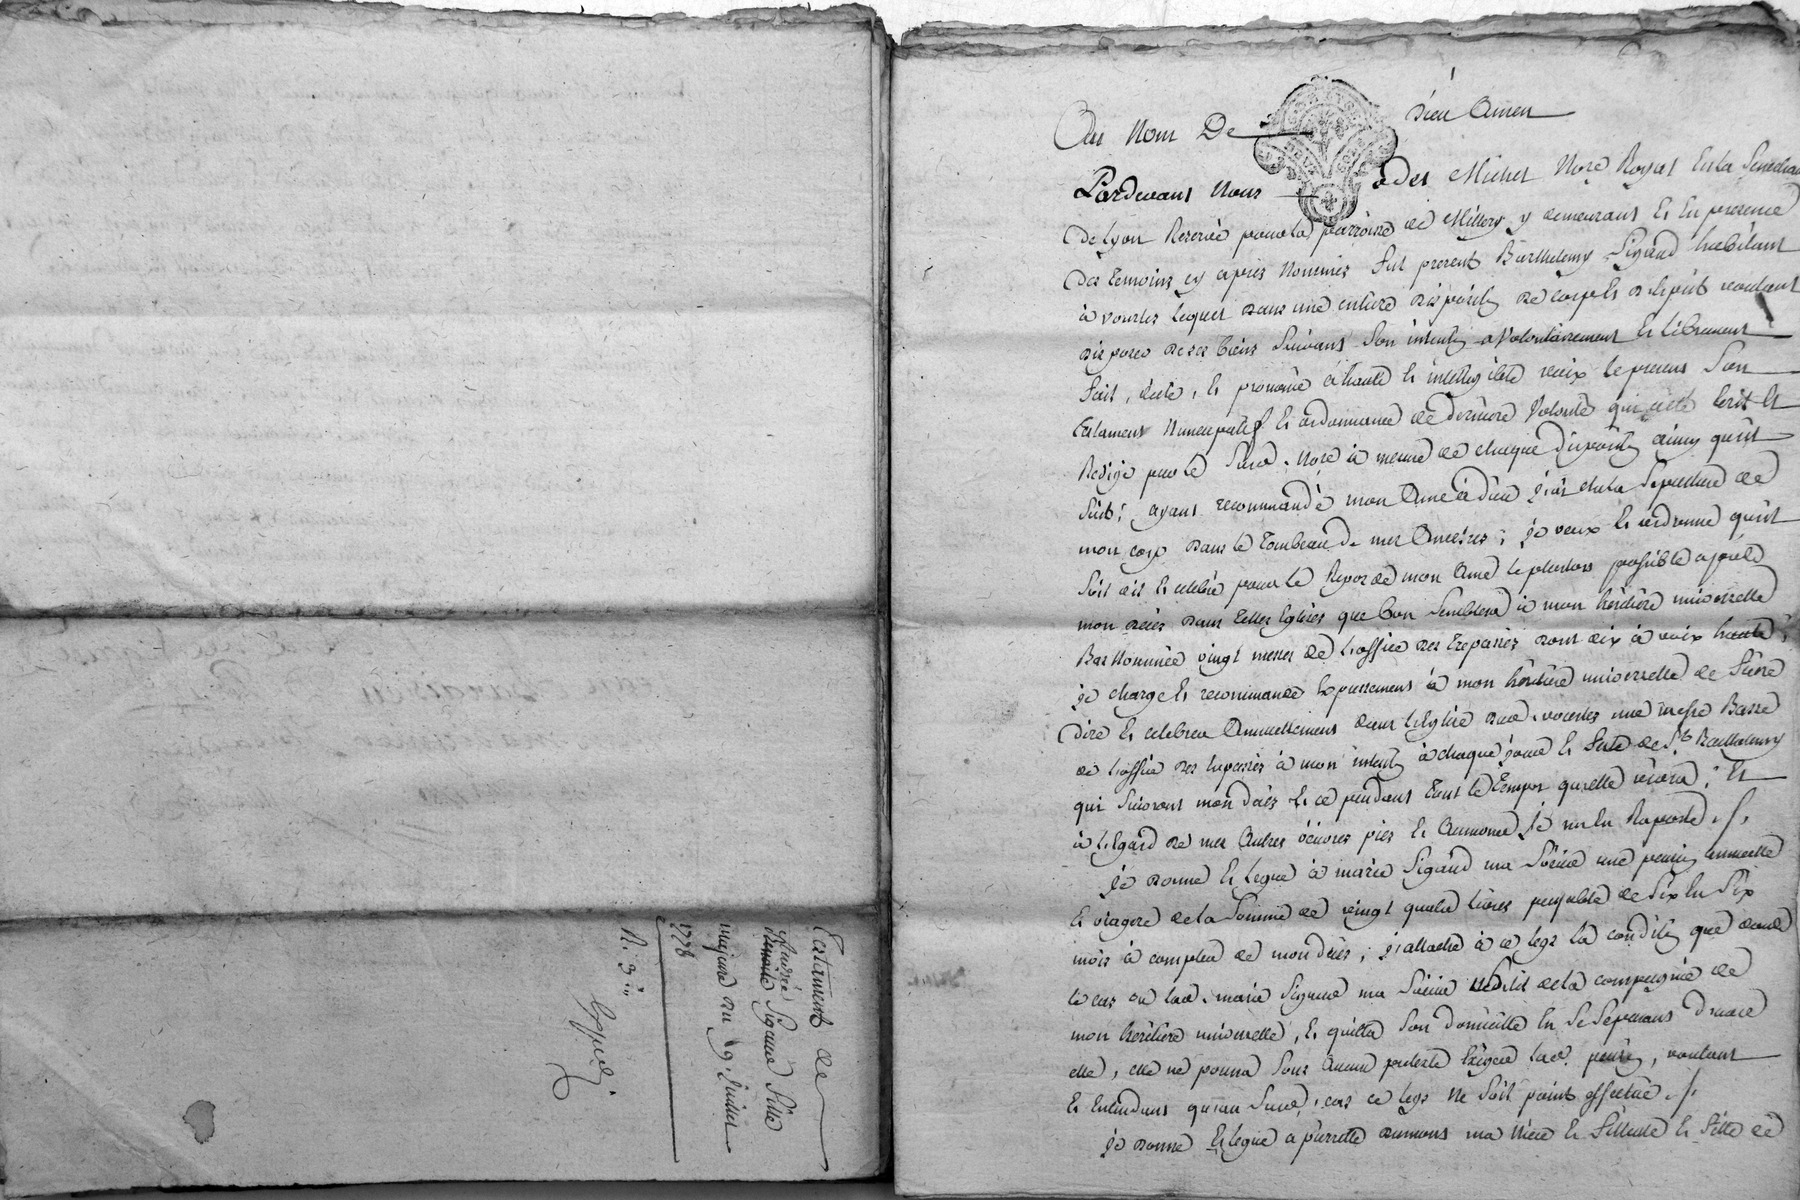 Testament de
Andrée Sigaud fille
majeure du 9. juillet
1778
R. 3
Expédié
Au Nom De Dieu Amen
Pardevant Nous Michel Nore Royal En la Senechau
De Lyon Reservé pour la parroisse de Millery y demeurant Et En presence
Des temoins cy apres Nommés fut present Barthelemy Sigaud habitant
à vourles lequel dans une entiere dispositõn de corps et d'esprit voulant
disposer de ses biens suivant son intentõn a Volontairement Et librement
fait, dicté, Et prononcé à haute Et intelligible voix le present Son
testament Nuncupatif Et ordonnance de derniere Volonté qui a été Ecrit Et
Redigé par led. Nore à mesure de chaque dispositõn ainsy qu'il
suit; ayant recommandé mon Ame à dieu Elu la Sepulture de
mon corp dans le tombeau de mes Ancetres; je veux Et ordonne qu'il
soit dit Et celebré pour le Repos de mon Ame le plutot possible après
mon décès dans telles Eglises que bon semblera à mon héritiere universelle
Bas Nommée vingt messes de l'office des trepassés dont dix à voix haute;
je charge Et recommande Expressement à mon héritiere universelle de faire
dire Et celebrer Annuellement dans l'Eglise dud. vourles une messe Basse
de l'office des trepassés à mon intentõn à chaque jour Et fete de St. Barthelemy
qui suivront mon décès Et ce pendant tout le temps qu'elle vivra; Et
à l'Egard de mes Autres œuvres pies Et Aumones je m'en Raporte
je donne Et legue à marie Sigaud ma Sœur une pensiõn annuelle
Et viagere de la somme de vingt quatre livres payable de six En six
mois à compter de mon décès; j'attache à ce legs la conditõn que dans
le cas ou lad. marie Sigaud ma Sœur de la compagnie de
mon héritiere universelle, Et quitta son domicille En se séparant d'avec
elle, elle ne pourra sous Aucun pretexte Exiger lad. pensiõn, voulant
Et Entendant qu'au susd. cas ce legs Ne soit point effectué
je donne Et legue a pierrette dumont ma Niece Et filleule Et fille de